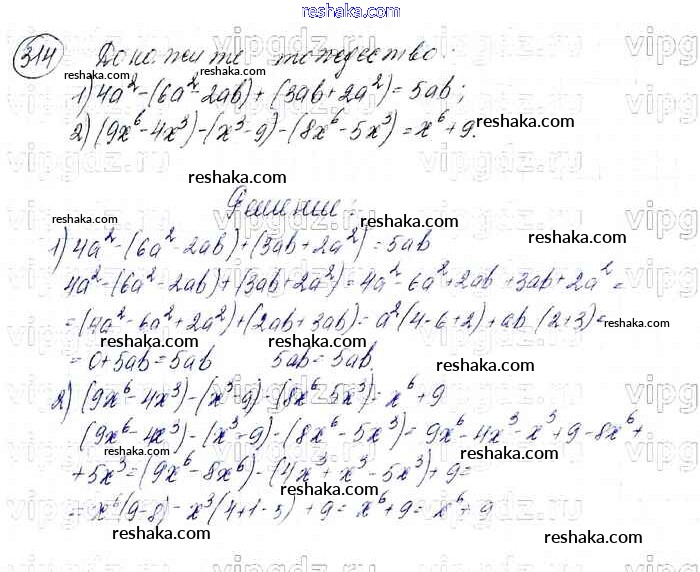 reshaka.com
314 Докажите тождество:
reshaka.com reshaka.com
1) 4a² - (6a² - 2ab) + (3ab + 2a²) = 5ab;
2) (9x⁶ - 4x³) - (x³ - 9) - (8x⁶ - 5x³) = x⁶ + 9.
reshaka.com
reshaka.com reshaka.com
Решение:
reshaka.com
1) 4a² - (6a² - 2ab) + (3ab + 2a²) = 5ab
reshaka.com
4a² - (6a² - 2ab) + (3ab + 2a²) = 4a² - 6a² + 2ab + 3ab + 2a² =
= (4a² - 6a² + 2a²) + (2ab + 3ab) = a²(4 - 6 + 2) + ab (2 + 3) =
reshaka.com
= 0 + 5ab = 5ab 5ab = 5ab
reshaka.com
2) (9x⁶ - 4x³) - (x³ - 9) - (8x⁶ - 5x³) = x⁶ + 9
reshaka.com
(9x⁶ - 4x³) - (x³ - 9) - (8x⁶ - 5x³) = 9x⁶ - 4x³ - x³ + 9 - 8x⁶ +
reshaka.com reshaka.com
+ 5x³ = (9x⁶ - 8x⁶) - (4x³ + x³ - 5x³) + 9 =
= x⁶(9 - 8) - x³(4 + 1 - 5) + 9 = x⁶ + 9 = x⁶ + 9
reshaka.com reshaka.com